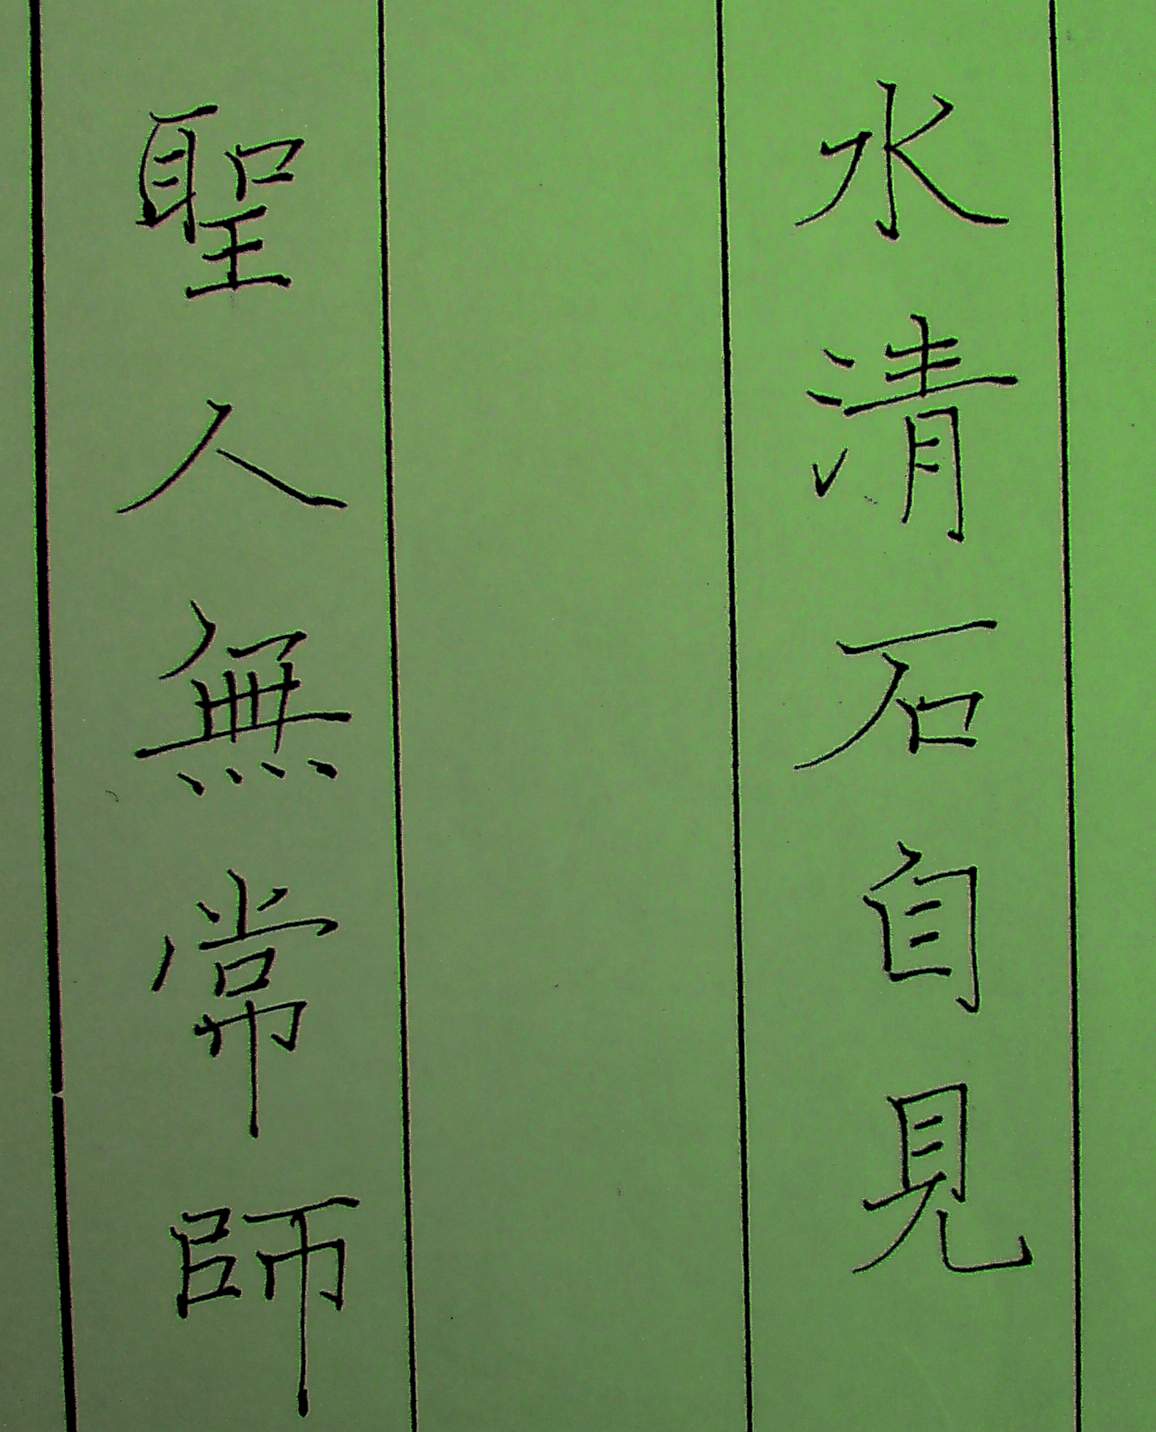 水清石自見
聖人無常師